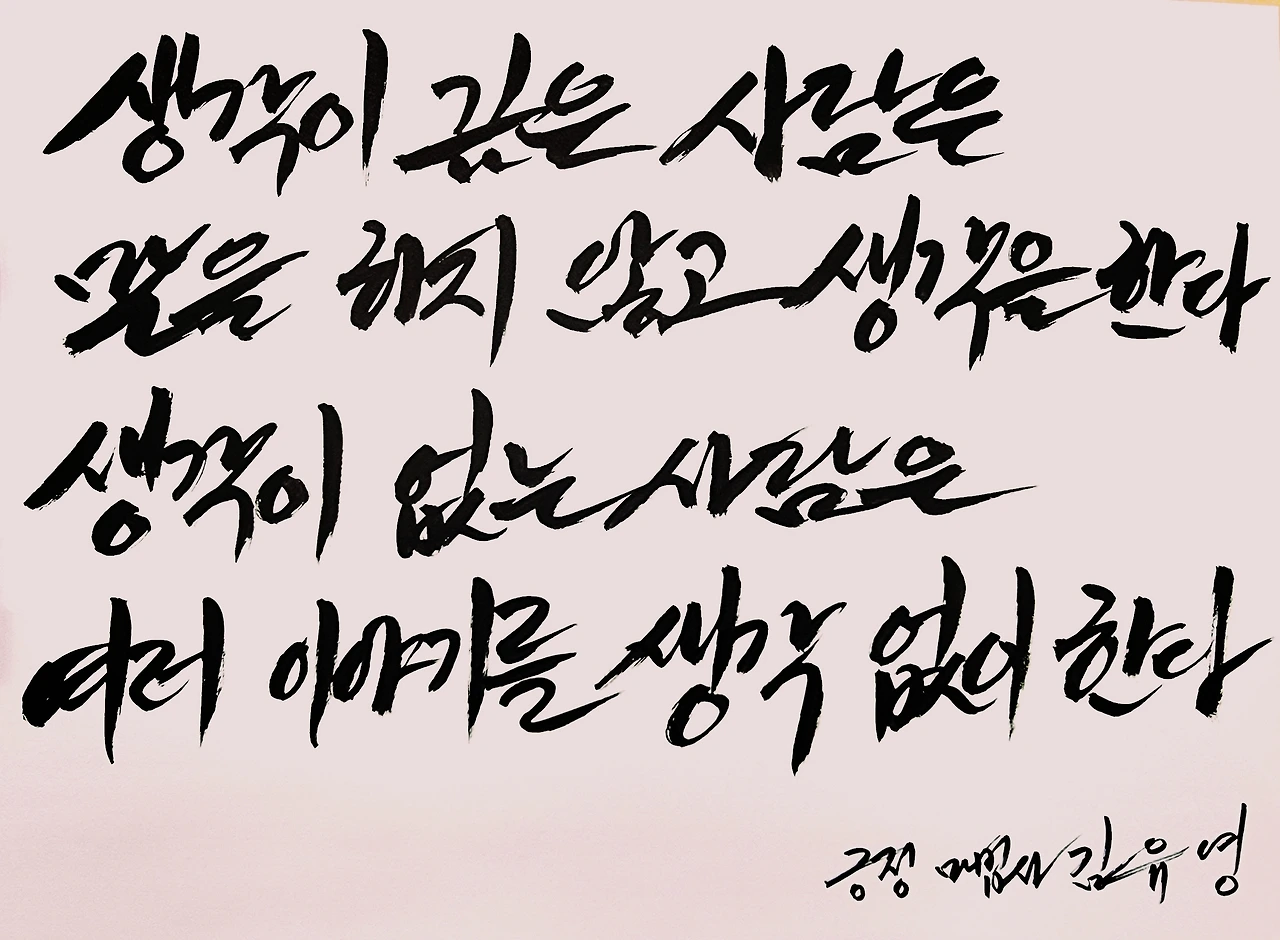 생각이 깊은 사람은
말을 하지 않고 생각을 한다
생각이 없는 사람은
여러 이야기를 생각 없이 한다
긍정 마법사 김유영